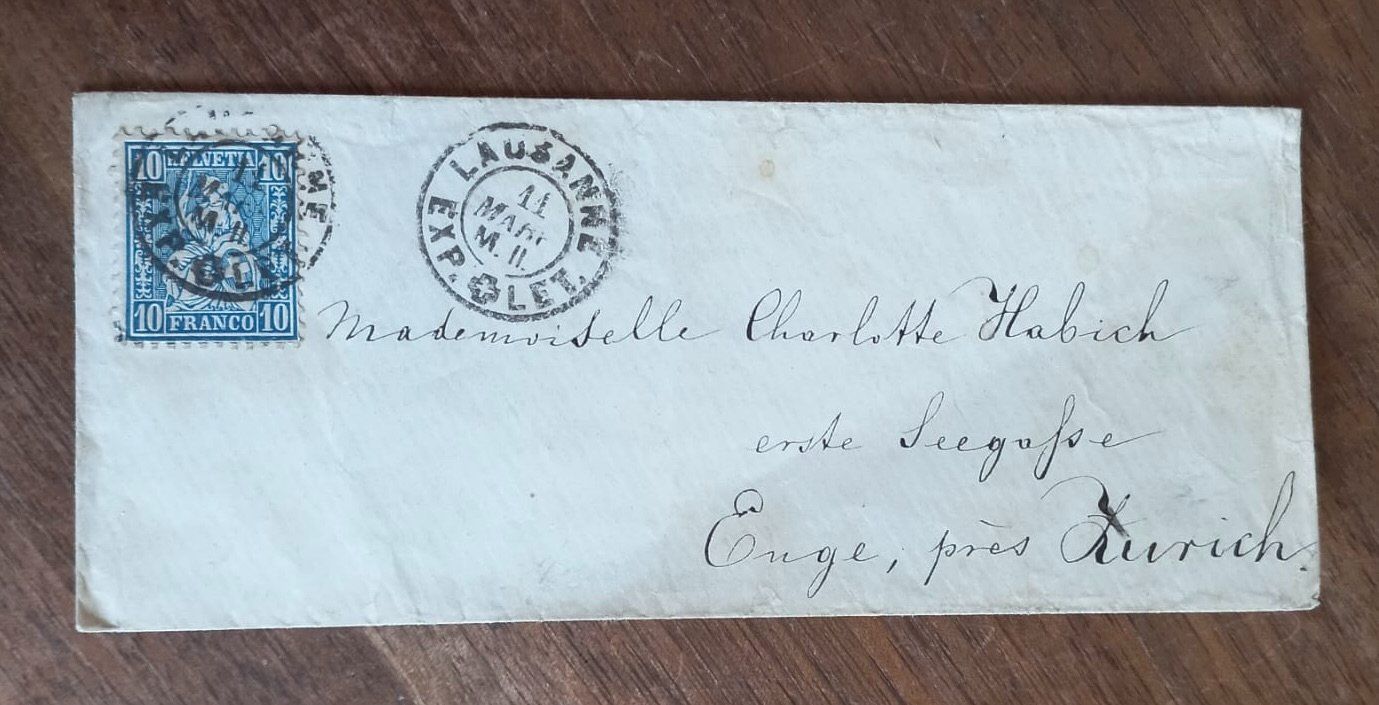 10 HELVETIA 10
10 FRANCO 10
EXP. LAUSANNE LET.
11
M. II.
Mademoiselle Charlotte Habich
erste Seegasse
Enge, près Zurich.